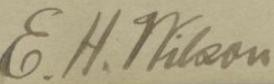 E. H. Wilson